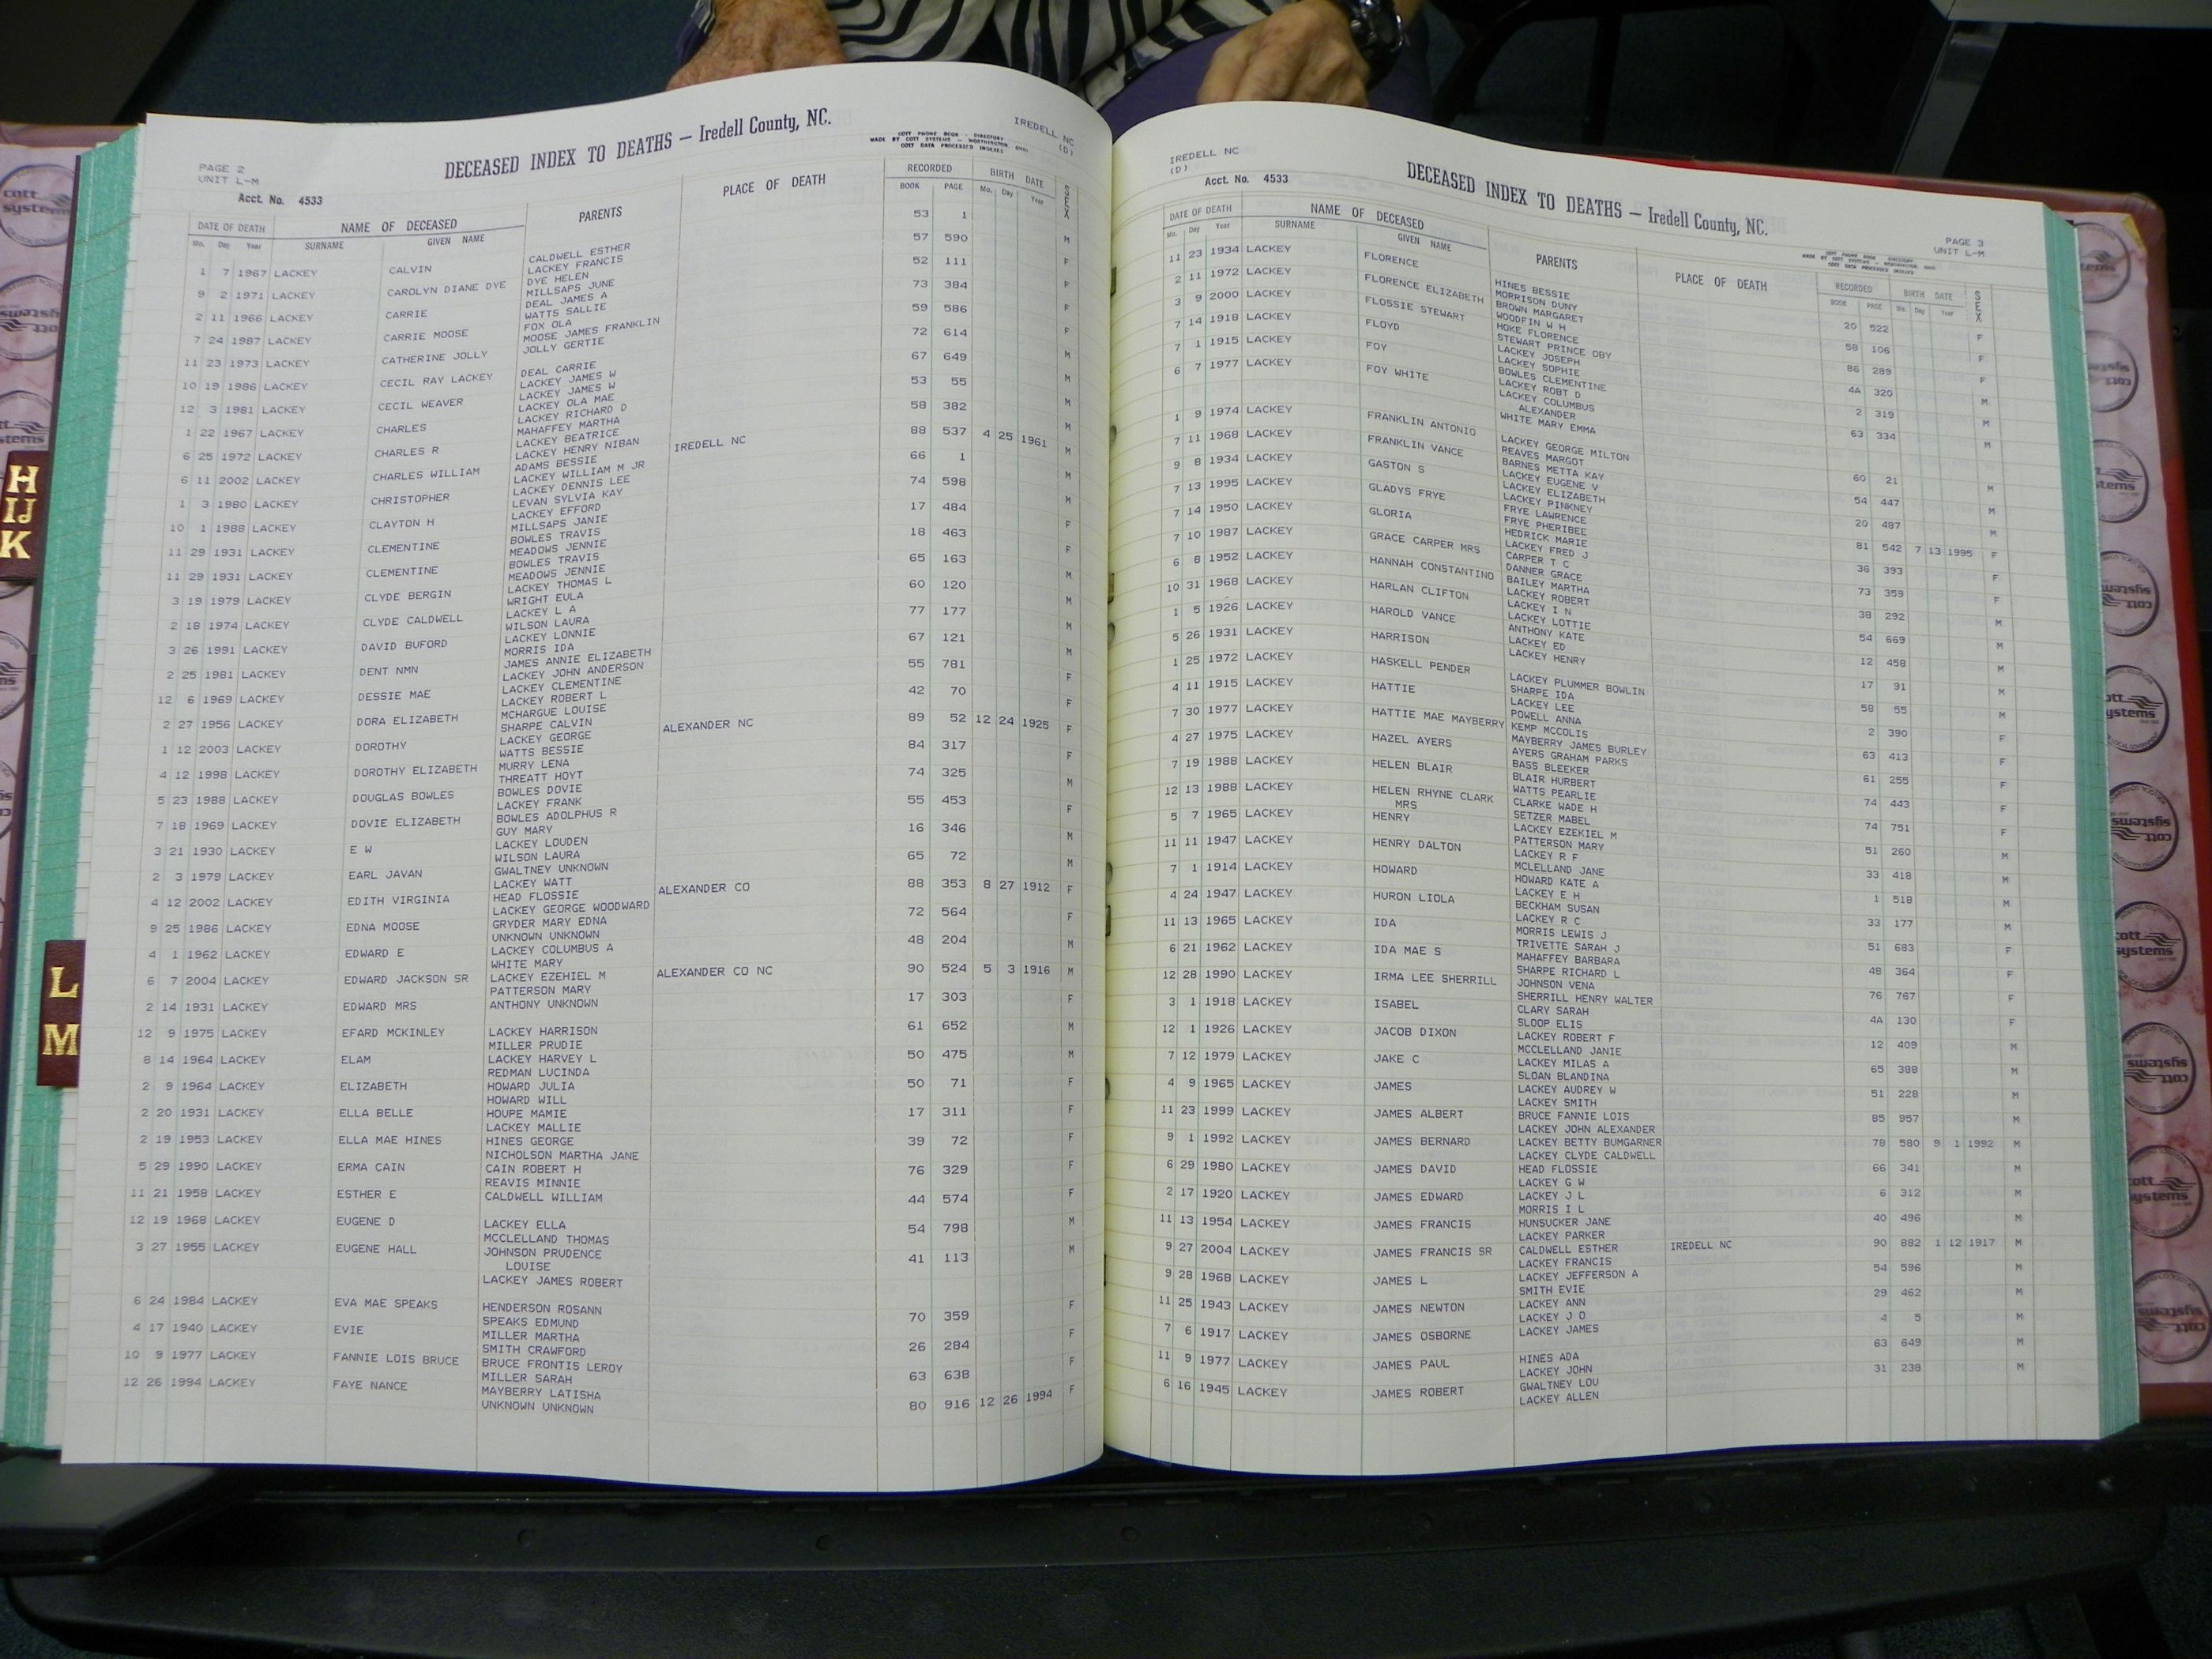 IREDELL NC
(D)
DECEASED INDEX TO DEATHS — Iredell County, NC.
COTT PHONE BOOK - DIRECTORY
MADE BY COTT SYSTEMS — WORTHINGTON, OHIO
COTT DATA PROCESSED INDEXES
PAGE 2
UNIT L-M
Acct. No. 4533
DATE OF DEATH NAME OF DECEASED PARENTS PLACE OF DEATH RECORDED BIRTH DATE SEX
Mo. Day Year SURNAME GIVEN NAME BOOK PAGE Mo. Day Year
1 7 1967 LACKEY CALVIN CALDWELL ESTHER 53 1 M
LACKEY FRANCIS
9 2 1971 LACKEY CAROLYN DIANE DYE DYE HELEN 57 590 F
MILLSAPS JUNE
2 11 1966 LACKEY CARRIE DEAL JAMES A 52 111 F
WATTS SALLIE
7 24 1987 LACKEY CARRIE MOOSE FOX OLA 73 384 F
MOOSE JAMES FRANKLIN
11 23 1973 LACKEY CATHERINE JOLLY JOLLY GERTIE 59 586
10 19 1986 LACKEY CECIL RAY LACKEY DEAL CARRIE 72 614 M
LACKEY JAMES W
12 3 1981 LACKEY CECIL WEAVER LACKEY JAMES W 67 649 M
LACKEY OLA MAE
1 22 1967 LACKEY CHARLES LACKEY RICHARD D 53 55 M
MAHAFFEY MARTHA
6 25 1972 LACKEY CHARLES R LACKEY BEATRICE 58 382 M
LACKEY HENRY NIBAN
6 11 2002 LACKEY CHARLES WILLIAM ADAMS BESSIE IREDELL NC 88 537 4 25 1961 M
LACKEY WILLIAM M JR
1 3 1980 LACKEY CHRISTOPHER LACKEY DENNIS LEE 66 1 M
LEVAN SYLVIA KAY
10 1 1988 LACKEY CLAYTON H LACKEY EFFORD 74 598 M
MILLSAPS JANIE
11 29 1931 LACKEY CLEMENTINE BOWLES TRAVIS 17 484 F
MEADOWS JENNIE
11 29 1931 LACKEY CLEMENTINE BOWLES TRAVIS 18 463 F
MEADOWS JENNIE
3 19 1979 LACKEY CLYDE BERGIN LACKEY THOMAS L 65 163 M
WRIGHT EULA
2 18 1974 LACKEY CLYDE CALDWELL LACKEY L A 60 120 M
WILSON LAURA
3 26 1991 LACKEY DAVID BUFORD LACKEY LONNIE 77 177 M
MORRIS IDA
2 25 1981 LACKEY DENT NMN JAMES ANNIE ELIZABETH 67 121 M
LACKEY JOHN ANDERSON
12 6 1969 LACKEY DESSIE MAE LACKEY CLEMENTINE 55 781 F
LACKEY ROBERT L
2 27 1956 LACKEY DORA ELIZABETH MCHARGUE LOUISE 42 70 F
SHARPE CALVIN
1 12 2003 LACKEY DOROTHY LACKEY GEORGE ALEXANDER NC 89 52 12 24 1925 F
WATTS BESSIE
4 12 1998 LACKEY DOROTHY ELIZABETH MURRY LENA 84 317 F
THREATT HOYT
5 23 1988 LACKEY DOUGLAS BOWLES BOWLES DOVIE 74 325 M
LACKEY FRANK
7 18 1969 LACKEY DOVIE ELIZABETH BOWLES ADOLPHUS R 55 453 F
GUY MARY
3 21 1930 LACKEY E W LACKEY LOUDEN 16 346 M
WILSON LAURA
2 3 1979 LACKEY EARL JAVAN GWALTNEY UNKNOWN 65 72 M
LACKEY WATT
4 12 2002 LACKEY EDITH VIRGINIA HEAD FLOSSIE ALEXANDER CO 88 353 8 27 1912 F
LACKEY GEORGE WOODWARD
9 25 1986 LACKEY EDNA MOOSE GRYDER MARY EDNA 72 564 F
UNKNOWN UNKNOWN
4 1 1962 LACKEY EDWARD E LACKEY COLUMBUS A 48 204 M
WHITE MARY
6 7 2004 LACKEY EDWARD JACKSON SR LACKEY EZEHIEL M ALEXANDER CO NC 90 524 5 3 1916 M
PATTERSON MARY
2 14 1931 LACKEY EDWARD MRS ANTHONY UNKNOWN 17 303 F
12 9 1975 LACKEY EFARD MCKINLEY LACKEY HARRISON 61 652 M
MILLER PRUDIE
8 14 1964 LACKEY ELAM LACKEY HARVEY L 50 475 M
REDMAN LUCINDA
2 9 1964 LACKEY ELIZABETH HOWARD JULIA 50 71 F
HOWARD WILL
2 20 1931 LACKEY ELLA BELLE HOUPE MAMIE 17 311 F
LACKEY MALLIE
2 19 1953 LACKEY ELLA MAE HINES HINES GEORGE 39 72 F
NICHOLSON MARTHA JANE
5 29 1990 LACKEY ERMA CAIN CAIN ROBERT H 76 329 F
REAVIS MINNIE
11 21 1958 LACKEY ESTHER E CALDWELL WILLIAM 44 574 F
12 19 1968 LACKEY EUGENE D LACKEY ELLA 54 798 M
MCCLELLAND THOMAS
3 27 1955 LACKEY EUGENE HALL JOHNSON PRUDENCE 41 113 M
LOUISE
LACKEY JAMES ROBERT
6 24 1984 LACKEY EVA MAE SPEAKS HENDERSON ROSANN 70 359 F
SPEAKS EDMUND
4 17 1940 LACKEY EVIE MILLER MARTHA 26 284 F
SMITH CRAWFORD
10 9 1977 LACKEY FANNIE LOIS BRUCE BRUCE FRONTIS LEROY 63 638 F
MILLER SARAH
12 26 1994 LACKEY FAYE NANCE MAYBERRY LATISHA 80 916 12 26 1994 F
UNKNOWN UNKNOWN
IREDELL NC
(D)
DECEASED INDEX TO DEATHS — Iredell County, NC.
Acct. No. 4533
PAGE 3
UNIT L-M
COTT PHONE BOOK - DIRECTORY
MADE BY COTT SYSTEMS — WORTHINGTON, OHIO
COTT DATA PROCESSED INDEXES
DATE OF DEATH NAME OF DECEASED PARENTS PLACE OF DEATH RECORDED BIRTH DATE SEX
Mo. Day Year SURNAME GIVEN NAME BOOK PAGE Mo. Day Year
11 23 1934 LACKEY FLORENCE HINES BESSIE 20 522 F
MORRISON DUNY
2 11 1972 LACKEY FLORENCE ELIZABETH BROWN MARGARET 58 106 F
WOODFIN W H
3 9 2000 LACKEY FLOSSIE STEWART HOKE FLORENCE 86 289 F
STEWART PRINCE OBY
7 14 1918 LACKEY FLOYD LACKEY JOSEPH 4A 320 M
LACKEY SOPHIE
7 1 1915 LACKEY FOY BOWLES CLEMENTINE 2 319 M
LACKEY ROBT D
6 7 1977 LACKEY FOY WHITE LACKEY COLUMBUS 63 334 M
ALEXANDER
WHITE MARY EMMA
1 9 1974 LACKEY FRANKLIN ANTONIO LACKEY GEORGE MILTON 60 21 M
REAVES MARGOT
7 11 1968 LACKEY FRANKLIN VANCE BARNES METTA KAY 54 447 M
LACKEY EUGENE V
9 8 1934 LACKEY GASTON S LACKEY ELIZABETH 20 487 M
LACKEY PINKNEY
7 13 1995 LACKEY GLADYS FRYE FRYE LAWRENCE 81 542 7 13 1995 F
FRYE PHERIBEE
7 14 1950 LACKEY GLORIA HEDRICK MARIE 36 393 F
LACKEY FRED J
7 10 1987 LACKEY GRACE CARPER MRS CARPER T C 73 359 F
DANNER GRACE
6 8 1952 LACKEY HANNAH CONSTANTINO BAILEY MARTHA 38 292 M
LACKEY ROBERT
10 31 1968 LACKEY HARLAN CLIFTON LACKEY I N 54 669 M
LACKEY LOTTIE
1 5 1926 LACKEY HAROLD VANCE ANTHONY KATE 12 458 M
LACKEY ED
5 26 1931 LACKEY HARRISON LACKEY HENRY 17 91 M
1 25 1972 LACKEY HASKELL PENDER LACKEY PLUMMER BOWLIN 58 55 M
SHARPE IDA
4 11 1915 LACKEY HATTIE LACKEY LEE 2 390 F
POWELL ANNA
7 30 1977 LACKEY HATTIE MAE MAYBERRY KEMP MCCOLIS 63 413 F
MAYBERRY JAMES BURLEY
4 27 1975 LACKEY HAZEL AYERS AYERS GRAHAM PARKS 61 255 F
BASS BLEEKER
7 19 1988 LACKEY HELEN BLAIR BLAIR HURBERT 74 443 F
WATTS PEARLIE
12 13 1988 LACKEY HELEN RHYNE CLARK CLARKE WADE H 74 751 F
MRS SETZER MABEL
5 7 1965 LACKEY HENRY LACKEY EZEKIEL M 51 260 M
PATTERSON MARY
11 11 1947 LACKEY HENRY DALTON LACKEY R F 33 418 M
MCLELLAND JANE
7 1 1914 LACKEY HOWARD HOWARD KATE A 1 518 M
LACKEY E H
4 24 1947 LACKEY HURON LIOLA BECKHAM SUSAN 33 177 M
LACKEY R C
11 13 1965 LACKEY IDA MORRIS LEWIS J 51 683 F
TRIVETTE SARAH J
6 21 1962 LACKEY IDA MAE S MAHAFFEY BARBARA 48 364 F
SHARPE RICHARD L
12 28 1990 LACKEY IRMA LEE SHERRILL JOHNSON VENA 76 767 F
SHERRILL HENRY WALTER
3 1 1918 LACKEY ISABEL CLARY SARAH 4A 130 F
SLOOP ELIS
12 1 1926 LACKEY JACOB DIXON LACKEY ROBERT F 12 409 M
MCCLELLAND JANIE
7 12 1979 LACKEY JAKE C LACKEY MILAS A 65 388 M
SLOAN BLANDINA
4 9 1965 LACKEY JAMES LACKEY AUDREY W 51 228 M
LACKEY SMITH
11 23 1999 LACKEY JAMES ALBERT BRUCE FANNIE LOIS 85 957 M
LACKEY JOHN ALEXANDER
9 1 1992 LACKEY JAMES BERNARD LACKEY BETTY BUMGARNER 78 580 9 1 1992 M
LACKEY CLYDE CALDWELL
6 29 1980 LACKEY JAMES DAVID HEAD FLOSSIE 66 341 M
LACKEY G W
2 17 1920 LACKEY JAMES EDWARD LACKEY J L 6 312 M
MORRIS I L
11 13 1954 LACKEY JAMES FRANCIS HUNSUCKER JANE 40 496 M
LACKEY PARKER
9 27 2004 LACKEY JAMES FRANCIS SR CALDWELL ESTHER IREDELL NC 90 882 1 12 1917 M
LACKEY FRANCIS
9 28 1968 LACKEY JAMES L LACKEY JEFFERSON A 54 596 M
SMITH EVIE
11 25 1943 LACKEY JAMES NEWTON LACKEY ANN 29 462 M
LACKEY J O
7 6 1917 LACKEY JAMES OSBORNE LACKEY JAMES 4 5 M
11 9 1977 LACKEY JAMES PAUL HINES ADA 63 649 M
LACKEY JOHN
6 16 1945 LACKEY JAMES ROBERT GWALTNEY LOU 31 238 M
LACKEY ALLEN
H
IJ
K
L
M
cott
systems